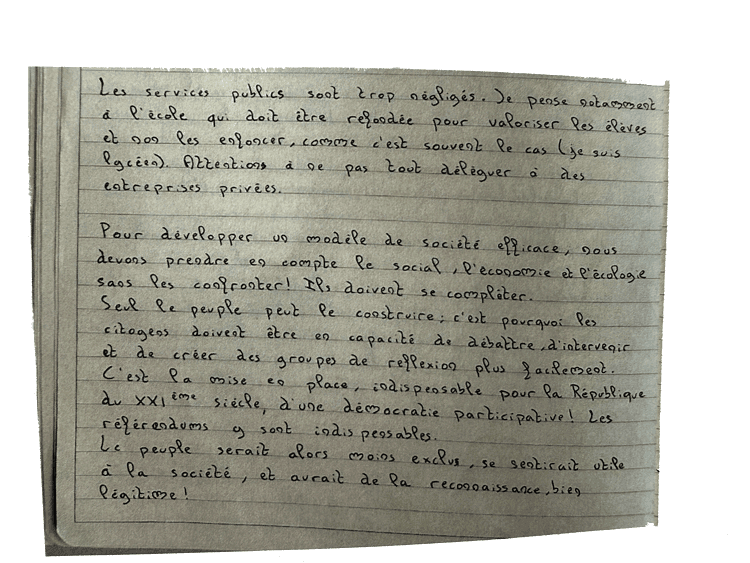 Les services publics sont trop négligés. Je pense notamment
à l'école qui doit être refondée pour valoriser les élèves
et non les enfoncer, comme c'est souvent le cas (je suis
lycéen). Attentions à ne pas tout déléguer à des
entreprises privées.
Pour développer un modèle de société efficace, nous
devons prendre en compte le social, l'économie et l'écologie
sans les confronter! Ils doivent se compléter.
Seul le peuple peut le construire; c'est pourquoi les
citoyens doivent être en capacité de débattre, d'intervenir
et de créer des groupes de reflexion plus facilement.
C'est la mise en place, indispensable pour la République
du XXIème siècle, d'une démocratie participative! Les
référendums y sont indispensables.
Le peuple serait alors moins exclus, se sentirait utile
à la société, et aurait de la reconnaissance, bien
légitime!